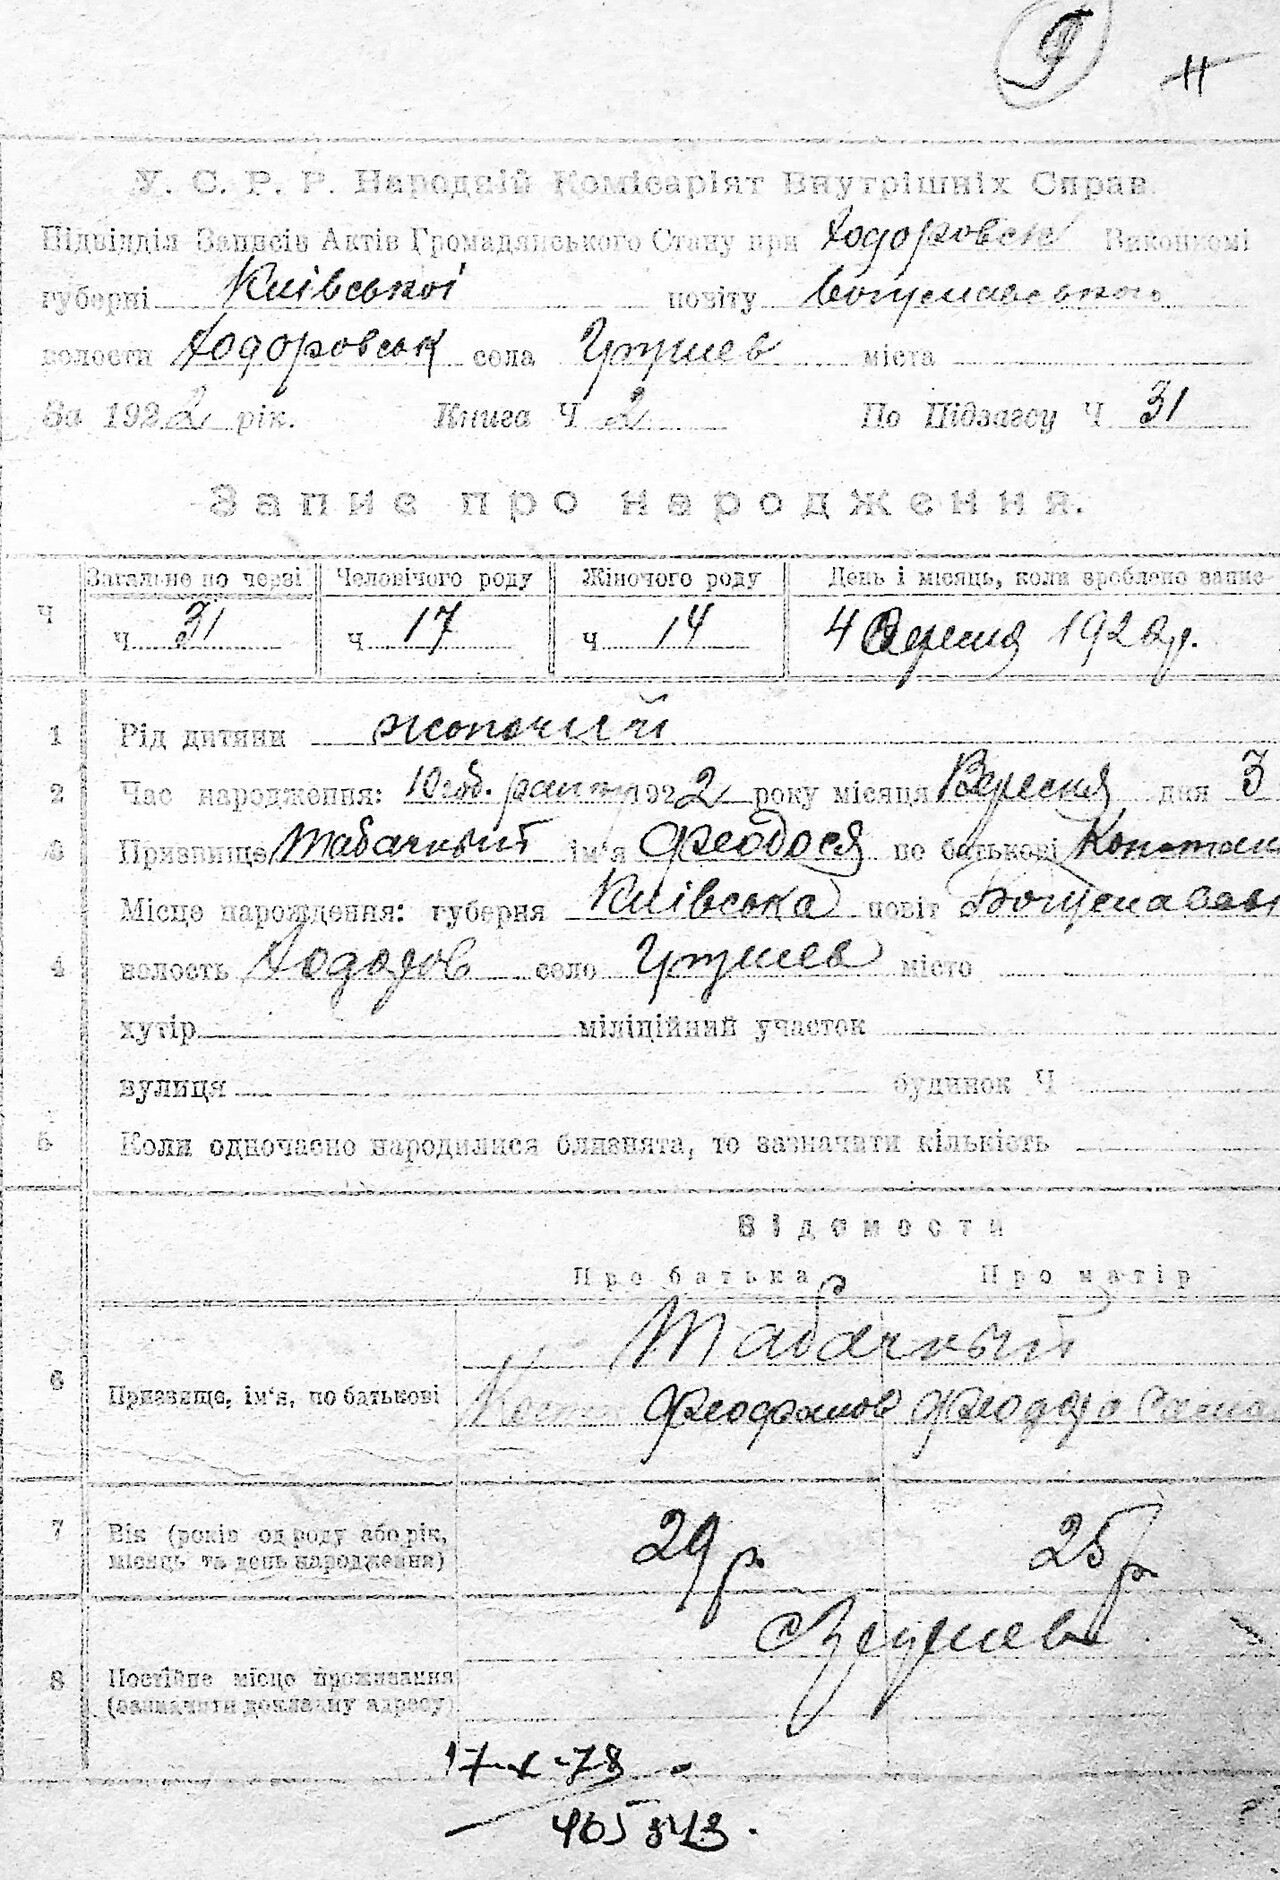 11
У. С. Р. Р. Народній Комісаріят Внутрішніх Справ.
Підвідділ Записів Актів Громадянського Стану при Ходоровськ Виконкомі
губерні Київської повіту Богуславського
волости Ходоровськ села міста
За 1922 рік. Книга Ч 2 По Підзагсу Ч 31
Запис про народження.
Ч Загальне по черзі Человічого роду Жіночого роду День і місяць, коли зроблено запис
Ч 31 Ч 17 Ч 14 4 Вересня 1922 р.
1 Рід дитини жіночий
2 Час народження: 10 год. ранку 1922 року місяця Вересня дня 3
3 Призвище Табачный ім'я Феодося по батькові Констан
Місце народження: губерня Київська повіт Богуславсь
4 волость Ходоров село місто
хутір міліційний участок
вулиця будинок Ч
5 Коли одночасно народилися близнята, то зазначити кількість
Відомости
Про батька Про матір
Табачный
6 Призвище, ім'я, по батькові Конст Феофанов
7 Вік (років од роду або рік, 29 р. 25 р.
місяць та день народження)
8 Постійне місце проживання
(зазначити докладну адресу)
17-X-78
405343.